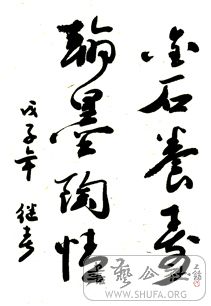 金石养寿
翰墨陶情
戊子年 继春
书艺公社
WWW.SHUFA.ORG